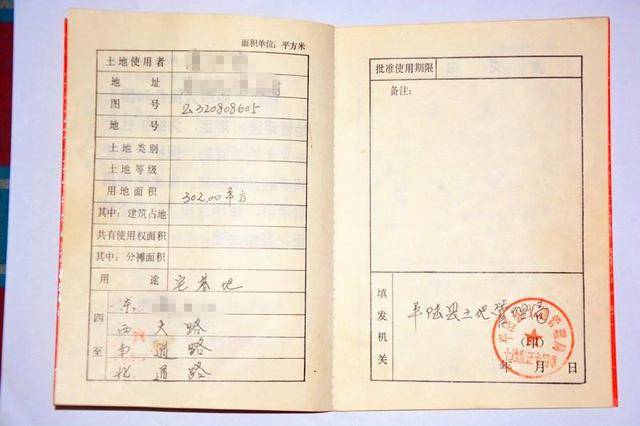 面积单位：平方米
土地使用者
地 址
图 号 公320808605
地 号
土地类别
土地等级
用地面积 302.00平方
其中：建筑占地
共有使用权面积
其中：分摊面积
用 途 宅基地
四至
东
西 大路
南 道路
北 道路
批准使用期限
备注：
填发机关
平陆县土地管理局
（印）
年 月 日